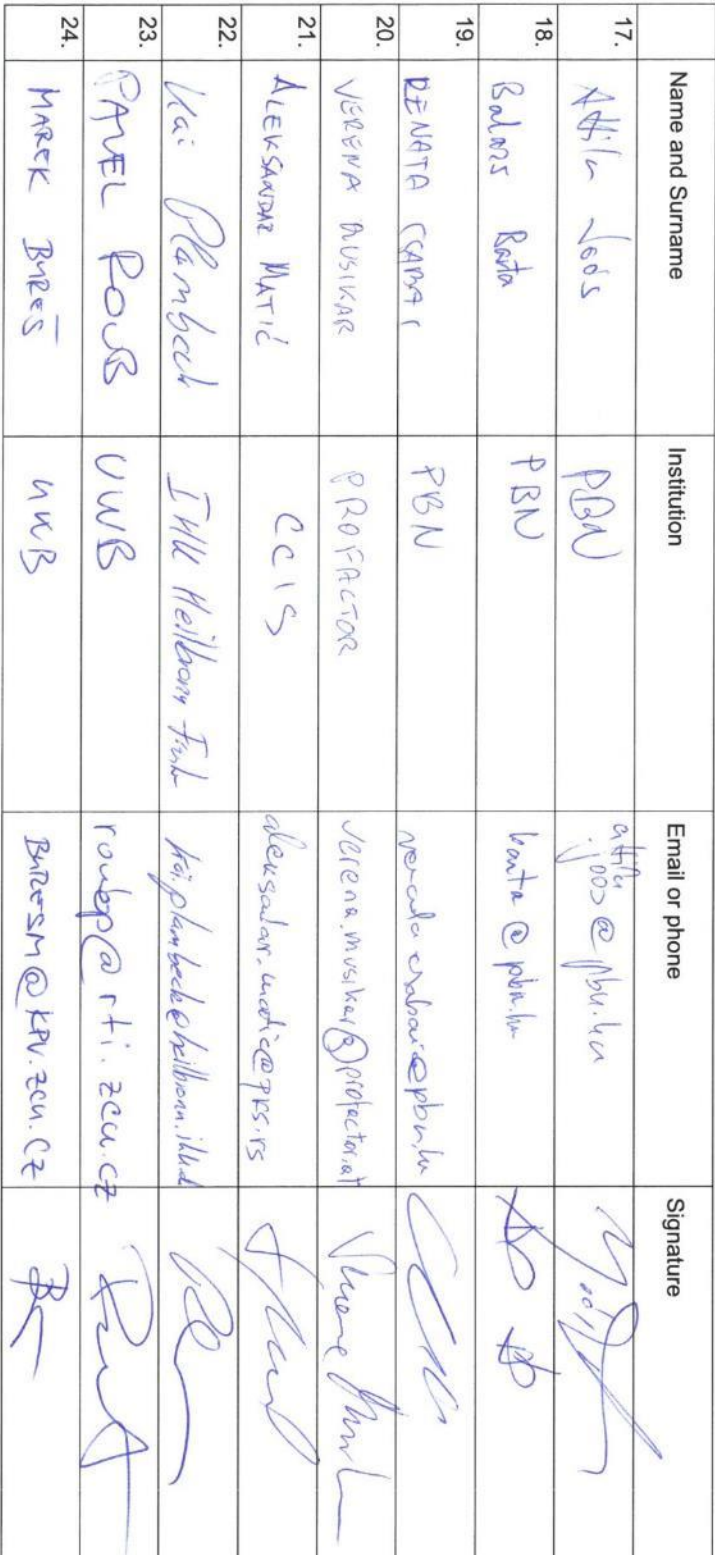 Name and Surname Institution Email or phone Signature
17. Attila Joós PBN attila.joos@pbn.hu
18. Balazs Barta PBN barta@pbn.hu
19. RENATA CSABAI PBN renata.csabai@pbn.hu
20. VERENA MUSIKAR PROFACTOR verena.musikar@profactor.at
21. ALEKSANDAR MATIĆ CCIS aleksandar.matic@pks.rs
22. Kai Plambeck IHK Heilbronn kai.plambeck@heilbronn.ihk.de
23. PAVEL ROUB UWB roubp@rti.zcu.cz
24. MAREK BUREŠ UWB BURESM@KPV.ZCU.CZ